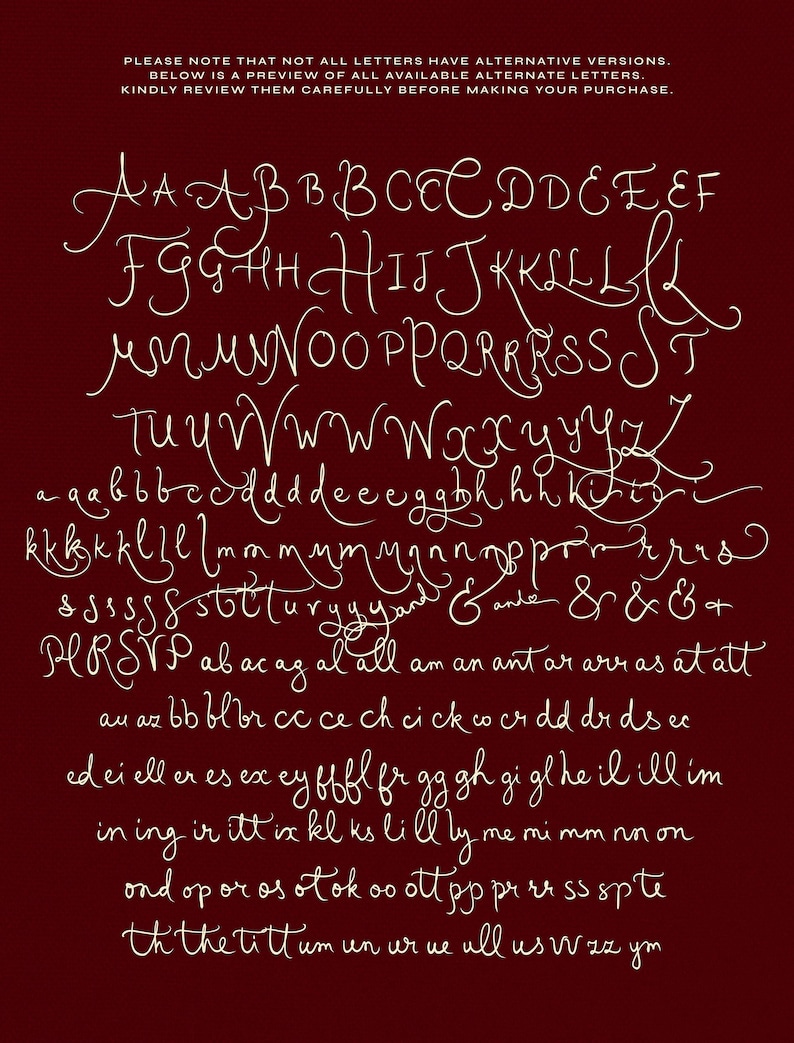 PLEASE NOTE THAT NOT ALL LETTERS HAVE ALTERNATIVE VERSIONS.
BELOW IS A PREVIEW OF ALL AVAILABLE ALTERNATE LETTERS.
KINDLY REVIEW THEM CAREFULLY BEFORE MAKING YOUR PURCHASE.
A A A B B B C C C D D E E E F
F G G H H H I J J K K L L L L L
M M M N N O O P P Q R R R S S S T
T U U V V W W W W X X Y Y Y Z Z
a a a b b b c c d d d d e e e g g h h h h h i i i i i
k k k k k l l l l m m m m m m n n n n p p r r r r r s
s s s s s s s t t t u v y y y and & and & & & +
Pl RSVP ab ac ag al all am an ant ar arr as at att
au az bb bl br cc ce ch ci ck co cr dd dr ds ec
ed ei ell er es ex ey ff fl fr gg gh gi gl he il ill im
in ing ir itt ix kl ks li ll ly me mi mm nn on
ond op or os ot ok oo ott pp pr rr ss sp te
th the ti tt um un ur ue ull us vv zz ym